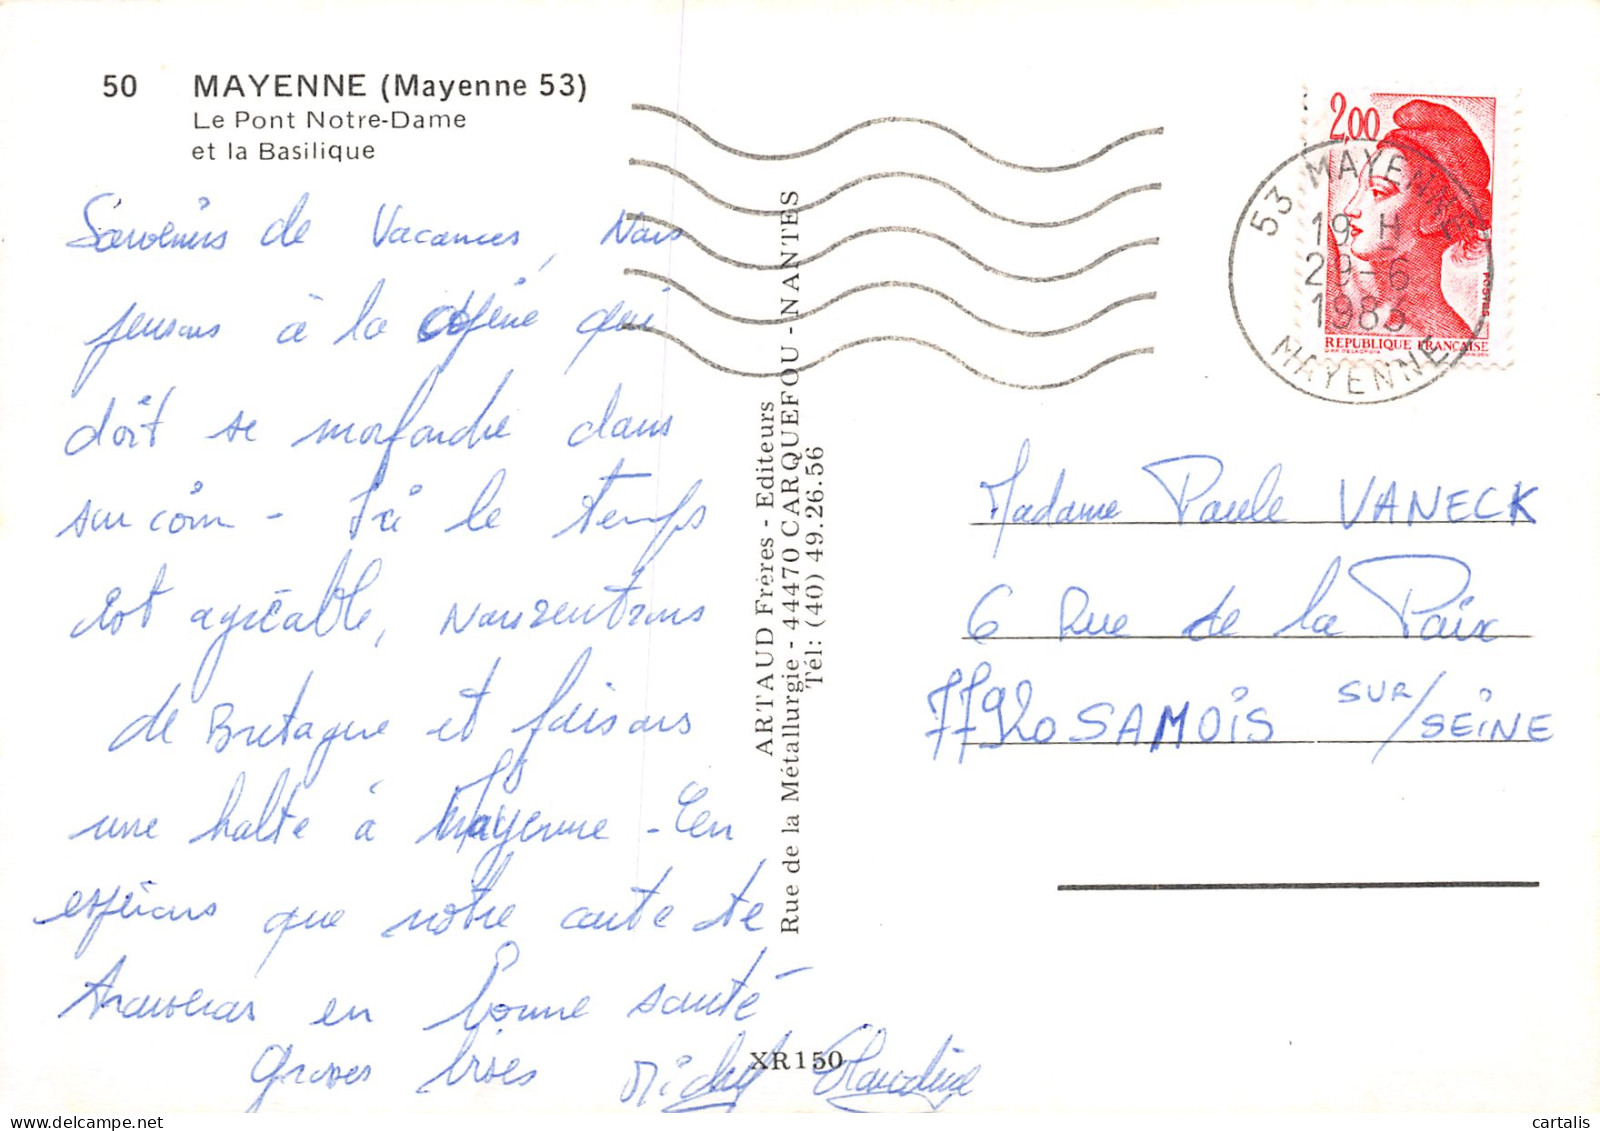 50 MAYENNE (Mayenne 53)
Le Pont Notre-Dame
et la Basilique
Souvenirs de Vacances, Nous
pensons à la qui
doit se morfondre dans
son coin - Ici le temps
est agréable, Nous rentrons
de Bretagne et faisons
une halte à Mayenne - En
espérons que notre carte te
trouvera en bonne santé
Grosses bises Michel Claudine
ARTAUD Frères - Editeurs
Rue de la Métallurgie - 44470 CARQUEFOU - NANTES
Tél: (40) 49.26.56
XR150
2,00
REPUBLIQUE FRANÇAISE
POSTES
53 MAYENNE
19 H
29-6
1983
MAYENNE
Madame Paule VANECK
6 Rue de la Paix
77920 SAMOIS SUR/SEINE
cartalis
delcampe.net